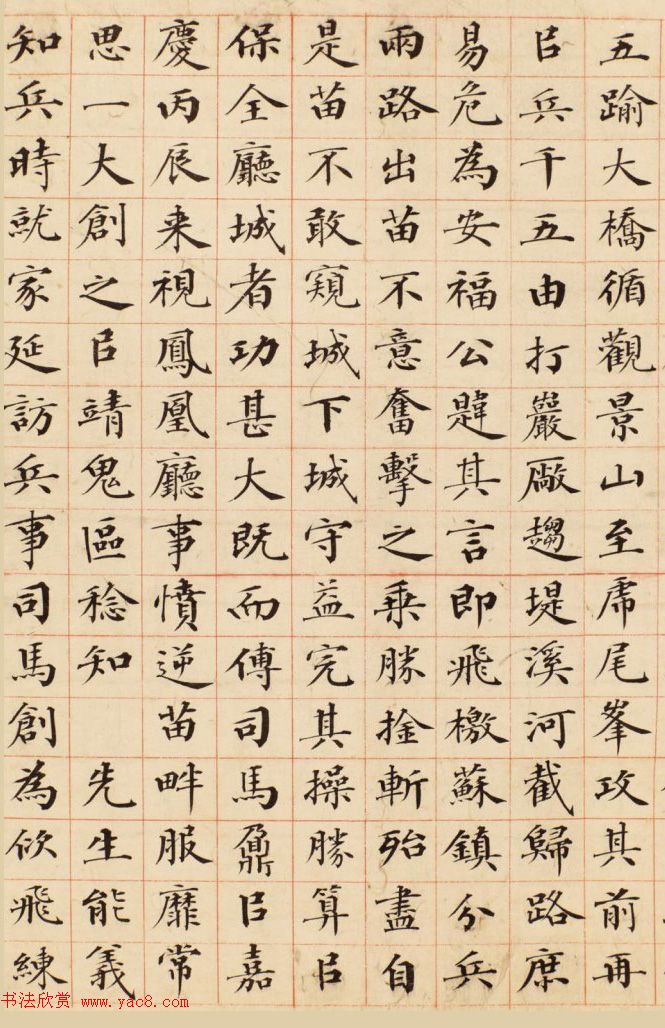 五踰大橋循觀景山至虎尾峯攻其前再
㠯兵千五由打巖厰趨堤溪河截歸路庶
易危為安福公韙其言即飛檄蘇鎮分兵
兩路出苗不意奮擊之乗勝擒斬殆盡自
是苗不敢窺城下城守益完其操勝算㠯
保全廳城者功甚大既而傅司馬鼐㠯嘉
慶丙辰来視鳳凰廳事憤逆苗畔服靡常
思一大創之㠯靖鬼區稔知 先生能義
知兵時就家延訪兵事司馬創為佽飛練
书法欣赏 www.yac8.com